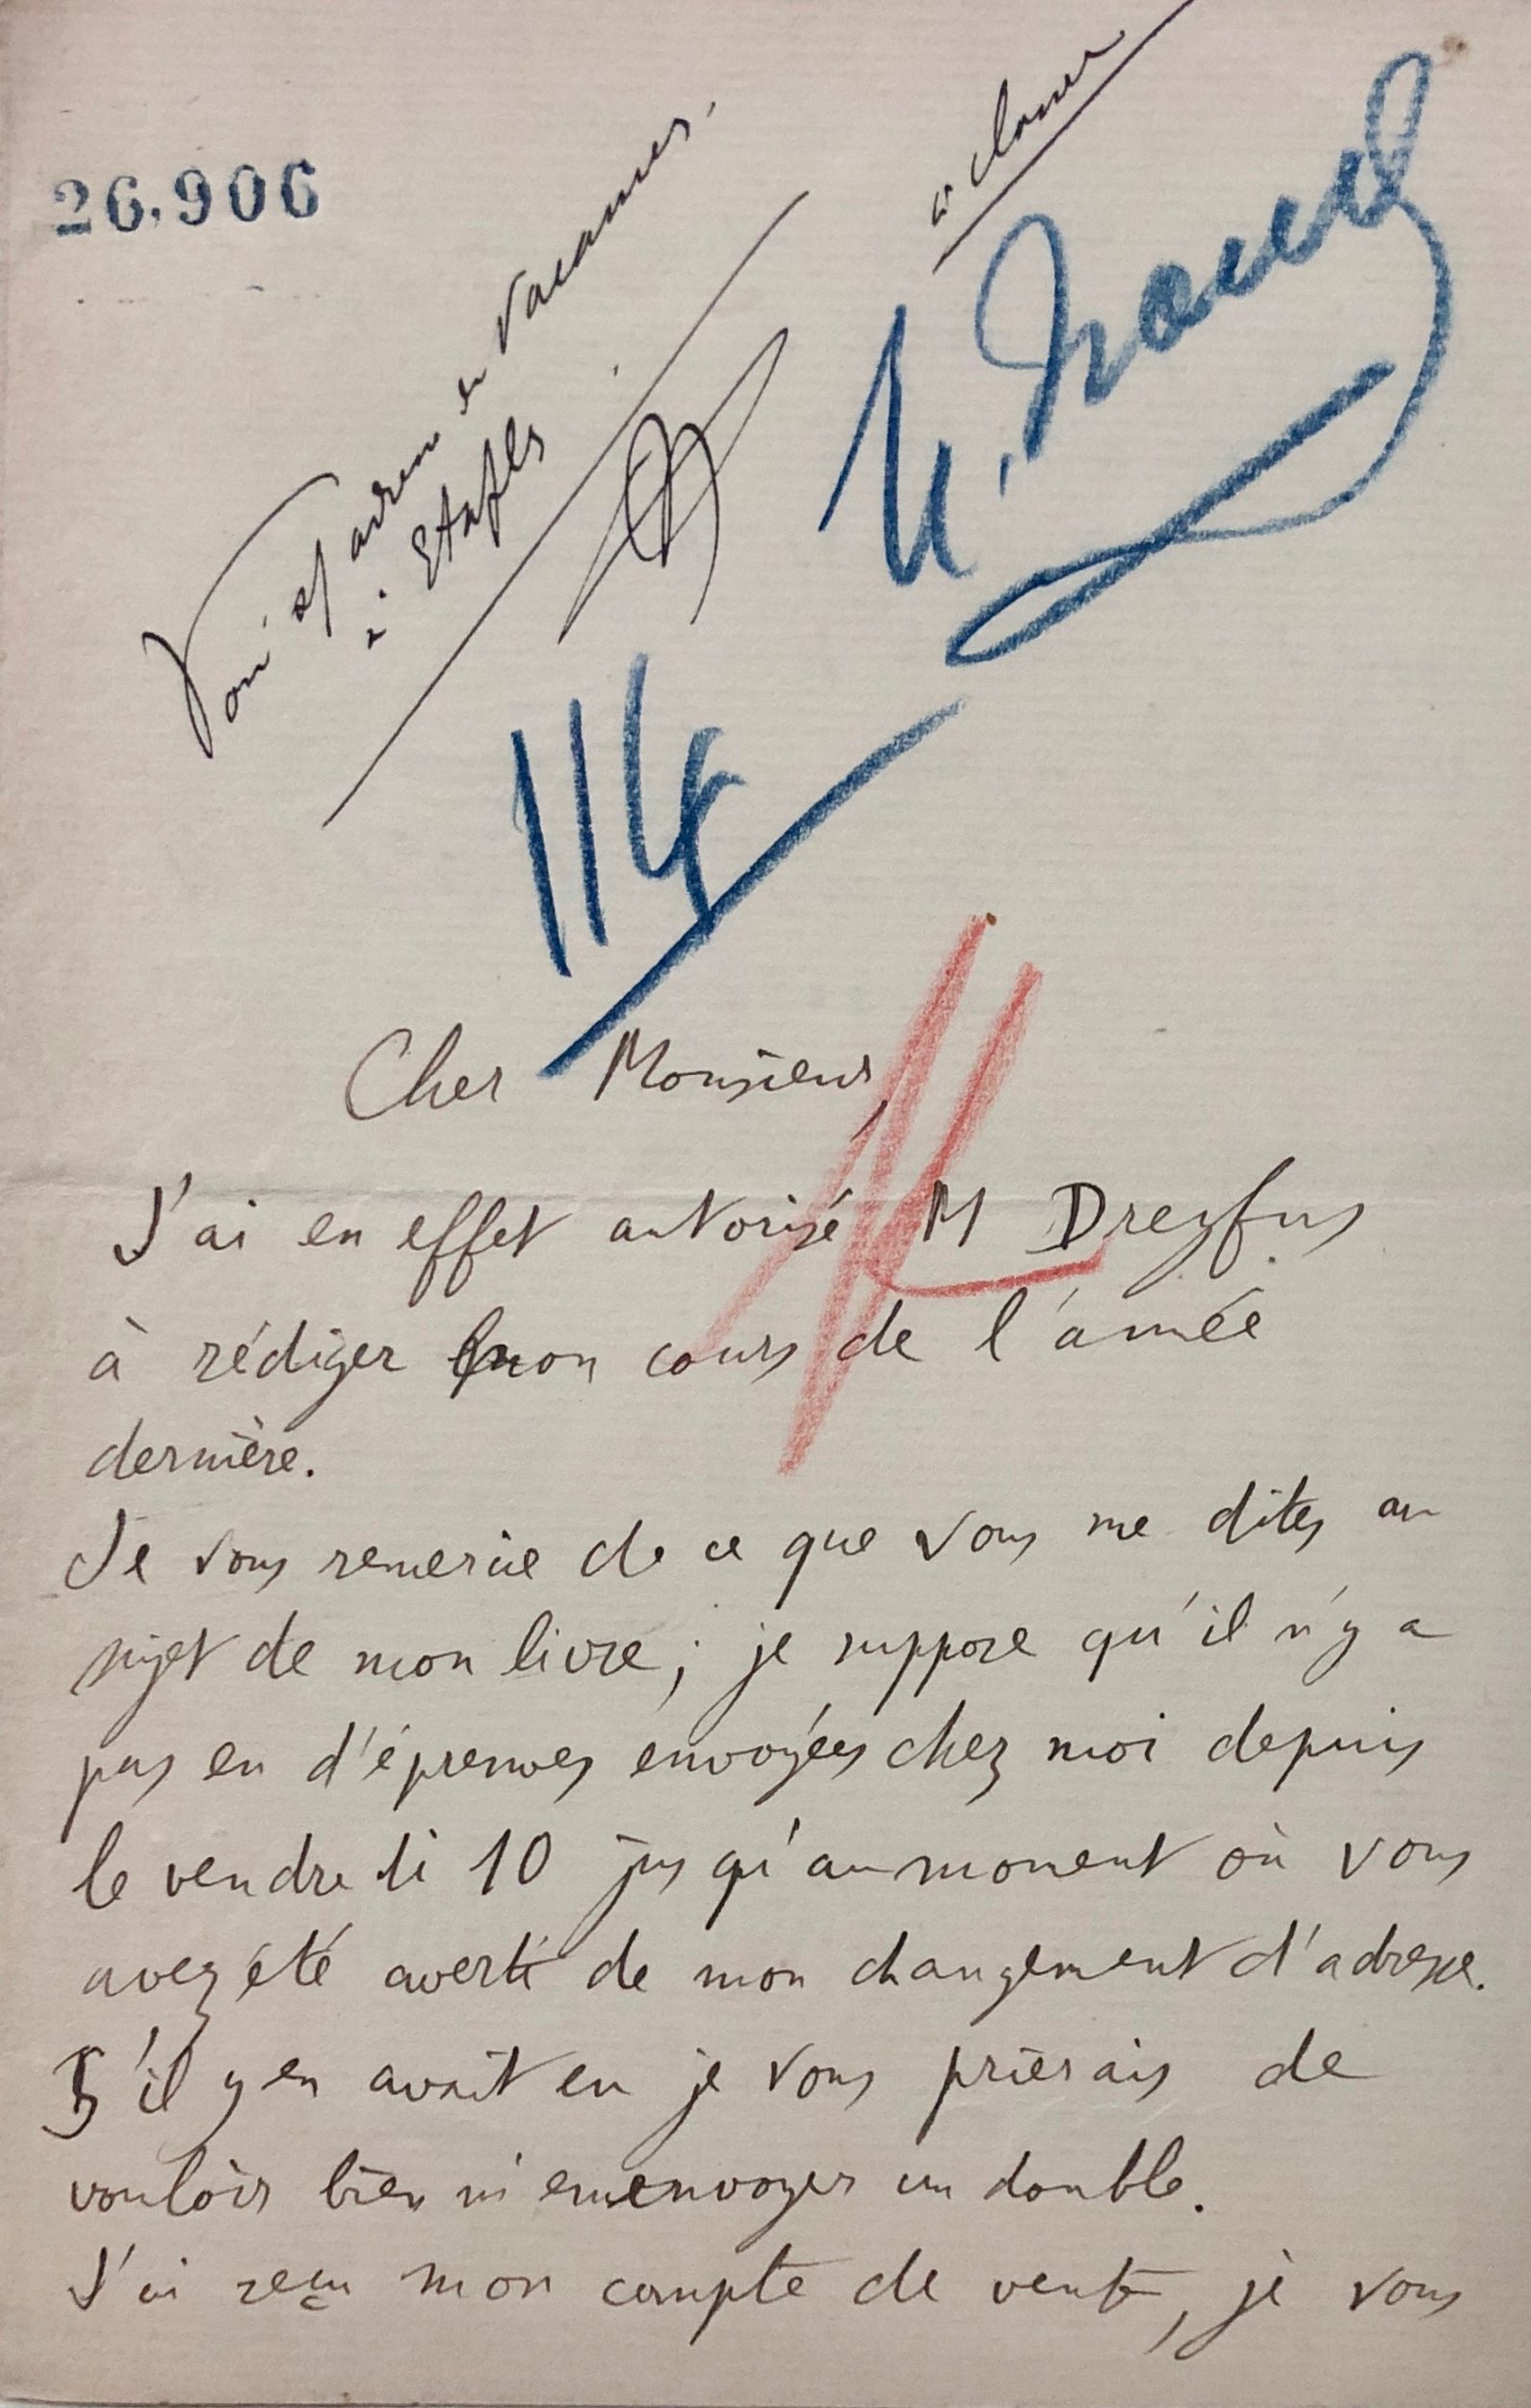 26.906
à classer
en vacances.
à Etaples
114
Cher Monsieur,
J'ai en effet autorisé M Dreyfus
à rédiger mon cours de l'année
dernière.
Je vous remercie de ce que vous me dites au
sujet de mon livre ; je suppose qu'il n'y a
pas eu d'épreuves envoyées chez moi depuis
le vendredi 10 jusqu'au moment où vous
avez été averti de mon changement d'adresse.
S'il y en avait eu je vous prierais de
vouloir bien m'en envoyer un double.
J'ai reçu mon compte de vente, je vous